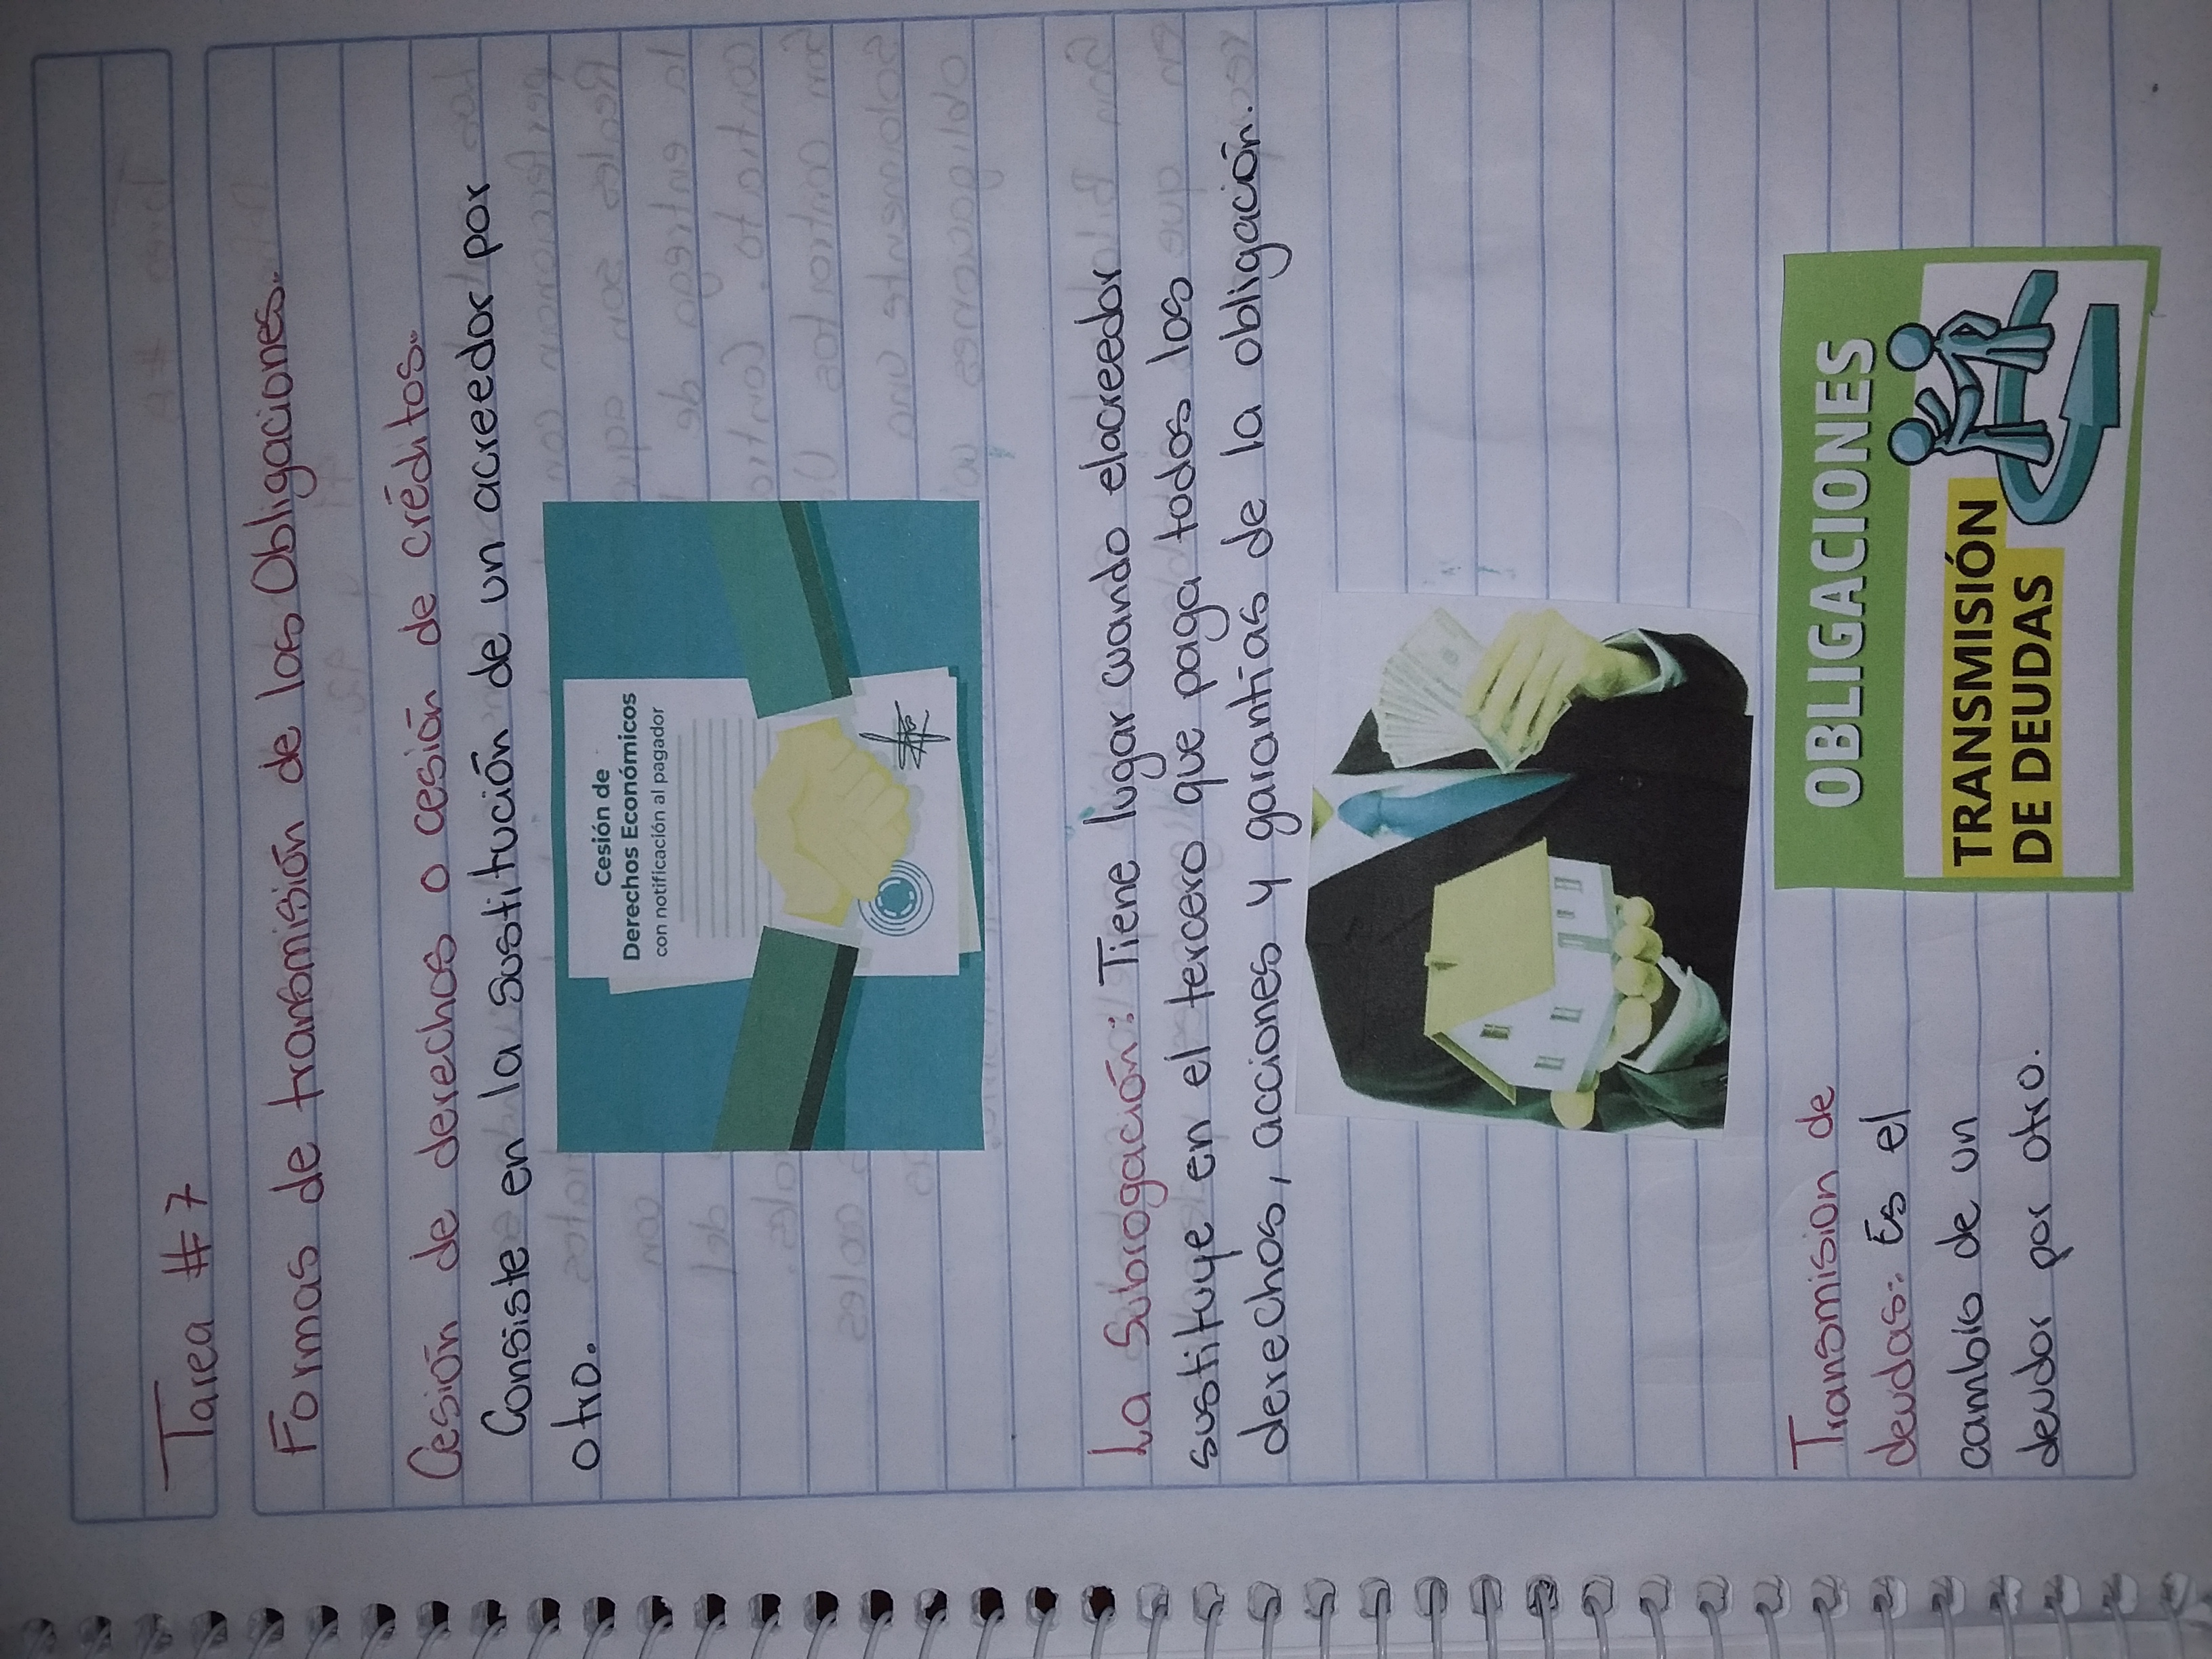 Tarea #7
Formas de transmisión de las Obligaciones.
Cesión de derechos o cesión de créditos.
Consiste en la sustitución de un acreedor por
otro.
Cesión de
Derechos Económicos
con notificación al pagador
La Subrogación: Tiene lugar cuando el acreedor
sustituye en el tercero que paga todos los
derechos, acciones y garantías de la obligación.
Transmision de
deudas: Es el
cambio de un
deudor por otro.
OBLIGACIONES
TRANSMISIÓN
DE DEUDAS